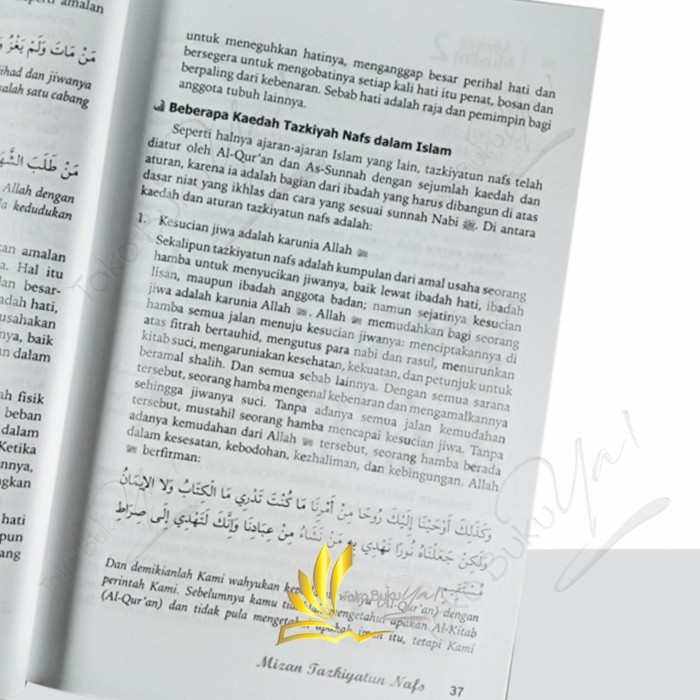 amalan
مَنْ مَاتَ وَلَمْ يَغْزُ
ihad dan jiwanya
salah satu cabang
مَنْ طَلَبَ
Allah dengan
kedudukan
an amalan
a. Hal itu
lan besar-
adah hati,
usahakan
nya, baik
n dalam
ah fisik
beban
dalam
Ketika
nnya,
gkan
hati
pun
ang
untuk meneguhkan hatinya, menganggap besar perihal hati dan
bersegera untuk mengobatinya setiap kali hati itu penat, bosan dan
berpaling dari kebenaran. Sebab hati adalah raja dan pemimpin bagi
anggota tubuh lainnya.
Beberapa Kaedah Tazkiyah Nafs dalam Islam
Seperti halnya ajaran-ajaran Islam yang lain, tazkiyatun nafs telah
diatur oleh Al-Qur'an dan As-Sunnah dengan sejumlah kaedah dan
aturan, karena ia adalah bagian dari ibadah yang harus dibangun di atas
dasar niat yang ikhlas dan cara yang sesuai sunnah Nabi ﷺ. Di antara
kaedah dan aturan tazkiyatun nafs adalah:
1. Kesucian jiwa adalah karunia Allah
Sekalipun tazkiyatun nafs adalah kumpulan dari amal usaha seorang
hamba untuk menyucikan jiwanya, baik lewat ibadah hati, ibadah
lisan, maupun ibadah anggota badan; namun sejatinya kesucian
jiwa adalah karunia Allah . Allah memudahkan bagi seorang
hamba semua jalan menuju kesucian jiwanya: menciptakannya di
atas fitrah bertauhid, mengutus para nabi dan rasul, menurunkan
kitab suci, mengaruniakan kesehatan, kekuatan, dan petunjuk untuk
beramal shalih. Dan semua sebab lainnya. Dengan semua sarana
tersebut, seorang hamba mengenal kebenaran dan mengamalkannya
sehingga jiwanya suci. Tanpa adanya semua jalan kemudahan
tersebut, mustahil seorang hamba mencapai kesucian jiwa. Tanpa
adanya kemudahan dari Allah tersebut, seorang hamba berada
dalam kesesatan, kebodohan, kezhaliman, dan kebingungan. Allah
berfirman:
وَكَذَلِكَ أَوْحَيْنَا إِلَيْكَ رُوحًا مِنْ أَمْرِنَا مَا كُنْتَ تَدْرِي مَا الْكِتَابُ وَلَا الْإِيمَانُ
وَلَكِنْ جَعَلْنَاهُ نُورًا نَهْدِي بِهِ مَنْ نَشَاءُ مِنْ عِبَادِنَا وَإِنَّكَ لَتَهْدِي إِلَى صِرَاطٍ
Dan demikianlah Kami wahyukan (Al-Qur'an) dengan
perintah Kami. Sebelumnya kamu mengetahui apakah Al-Kitab
(Al-Qur'an) dan tidak pula iman itu, tetapi Kami
Toko Buku Ya!
Mizan Tazkiyatun Nafs 37